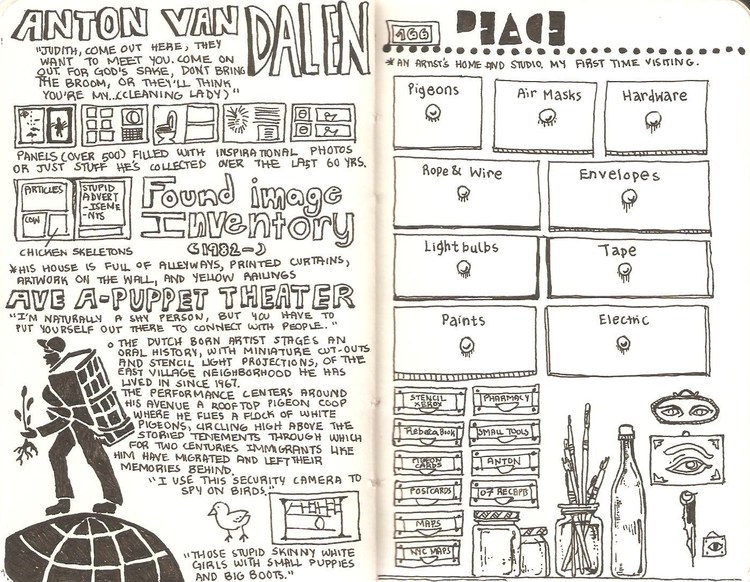 ANTON VAN DALEN
"JUDITH, COME OUT HERE, THEY
WANT TO MEET YOU. COME ON
OUT FOR GOD'S SAKE, DON'T BRING
THE BROOM, OR THEY'LL THINK
YOU'RE MY...(CLEANING LADY)"
PANELS (OVER 500) FILLED WITH INSPIRATIONAL PHOTOS
OR JUST STUFF HE'S COLLECTED OVER THE LAST 60 YRS.
ARTICLES
COW
STUPID
ADVERT
-ISEME
-NTS
CHICKEN SKELETONS
Found image
Inventory
(1982-)
*HIS HOUSE IS FULL OF ALLEYWAYS, PRINTED CURTAINS,
ARTWORK ON THE WALL, AND YELLOW RAILINGS
AVE A-PUPPET THEATER
"I'M NATURALLY A SHY PERSON, BUT YOU HAVE TO
PUT YOURSELF OUT THERE TO CONNECT WITH PEOPLE."
THE DUTCH BORN ARTIST STAGES AN
ORAL HISTORY, WITH MINIATURE CUT-OUTS
AND STENCIL LIGHT PROJECTIONS, OF THE
EAST VILLAGE NEIGHBORHOOD HE HAS
LIVED IN SINCE 1967.
THE PERFORMANCE CENTERS AROUND
HIS AVENUE A ROOFTOP PIGEON COOP
WHERE HE FLIES A FLOCK OF WHITE
PIGEONS, CIRCLING HIGH ABOVE THE
STORIED TENEMENTS THROUGH WHICH
FOR TWO CENTURIES IMMIGRANTS LIKE
HIM HAVE MIGRATED AND LEFT THEIR
MEMORIES BEHIND.
"I USE THIS SECURITY CAMERA TO
SPY ON BIRDS."
"THOSE STUPID SKINNY WHITE
GIRLS WITH SMALL PUPPIES
AND BIG BOOTS."
166 PEACE
*AN ARTIST'S HOME AND STUDIO. MY FIRST TIME VISITING.
Pigeons
Air Masks
Hardware
Rope & Wire
Envelopes
Lightbulbs
Tape
Paints
Electric
STENCIL
XEROX
PHARMACY
SMALL TOOLS
PIGEON
CARDS
ANTON
POSTCARDS
MAPS
NYC MAPS